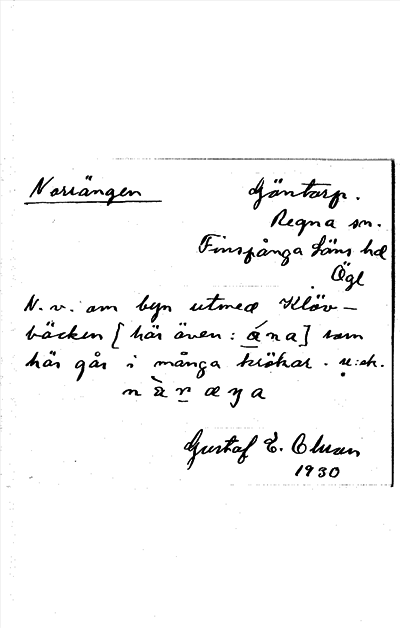 Norrängen
Gäntorp.
Regna sn.
Finspånga läns hd
Ögl
N. v. om byn utmed Klöv-
bäcken [här även: ána] som
här går i många krökar.
Gustaf E. Olsson
1930